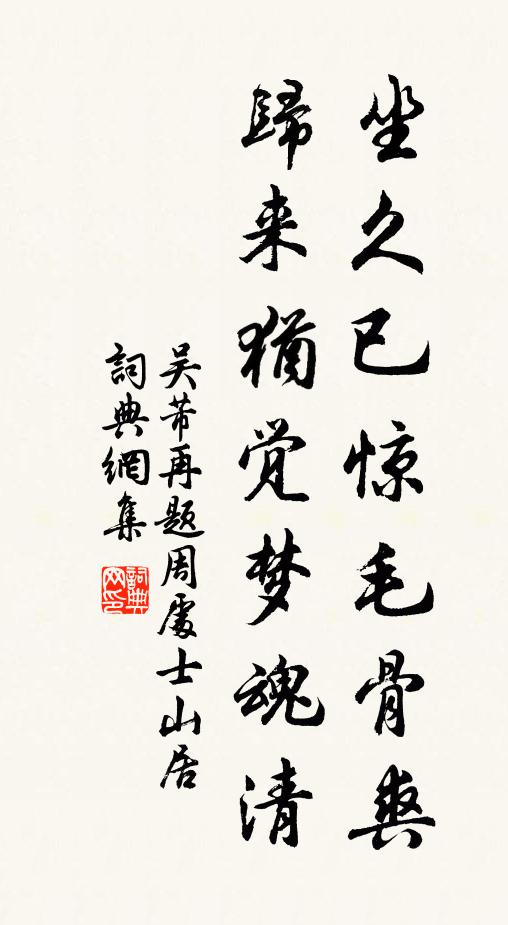 坐久已惊毛骨爽
歸来猶觉梦魂清
吴芾再题周處士山居
詞典網集
詞典網印